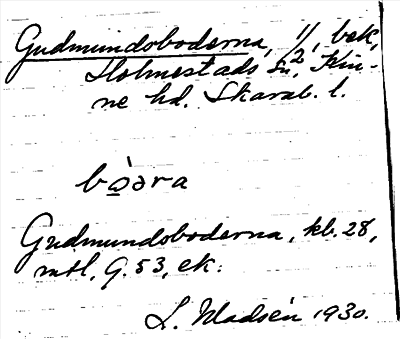 Gudmundsboderna, 1/2, bek,
Holmestads sn, Kin-
ne hd. Skarab. l.
bò̲əra
Gudmundsboderna, kb. 28,
mtl, G. 53, ek.
L. Madsén 1930.